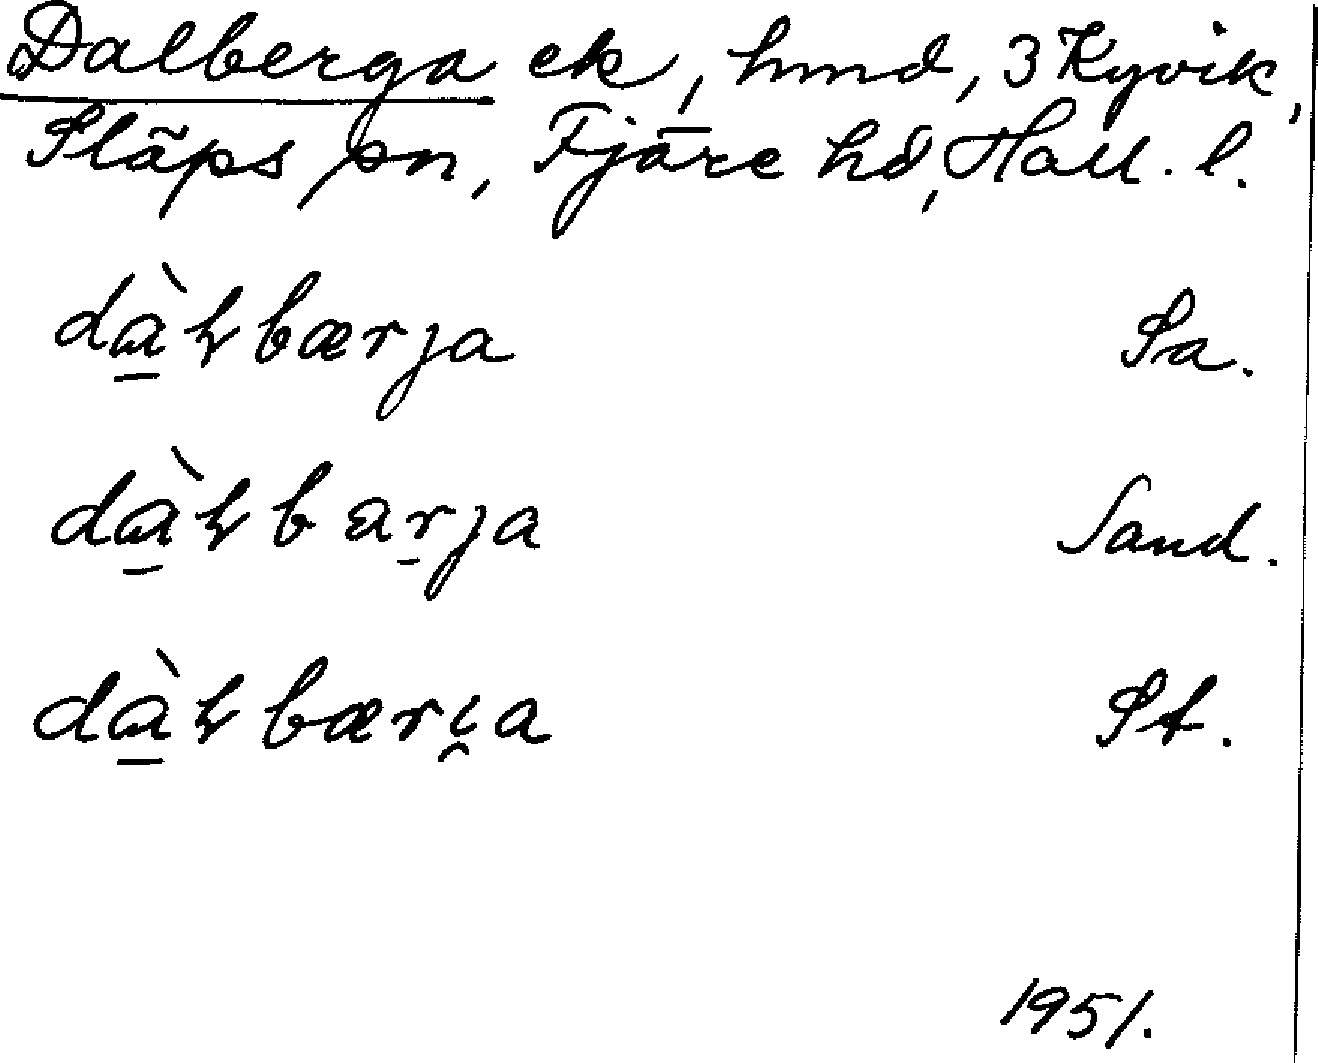 Dalberga ek, hmd, 3 Kyvik,
Släps sn, Fjäre hd, Hall. l.
dɑ̱̀ɫbærja Sa.
dɑ̱̀ɫbar̠ja Sand.
dɑ̱̀ɫbæri̯a St.
1951.